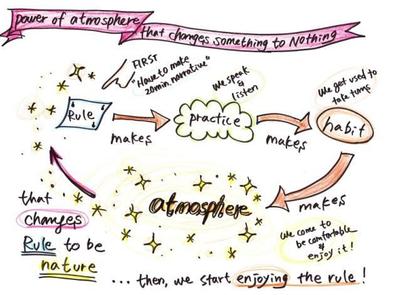 power of atmosphere
that changes something to Nothing
FIRST
"Have to make
20min. narrative"
We speak
&
listen
We get used to
take turns
Rule
makes
practice
makes
habit
makes
atmosphere
We come to
be comfortable
& enjoy it!
that
changes
Rule to be
nature
... then, we start enjoying the rule!